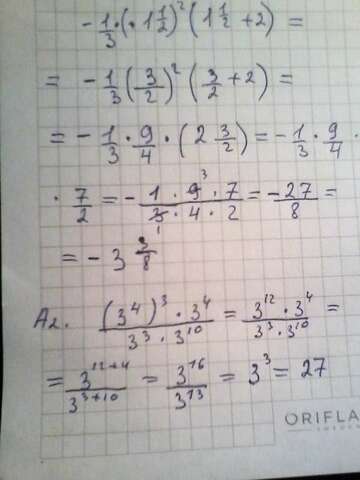 -1/3 · (·1 1/2)² (1 1/2 + 2) =
= -1/3 (3/2)² (3/2 + 2) =
= -1/3 · 9/4 · (2 3/2) = -1/3 · 9/4 ·
· 7/2 = - (1 · 9³ · 7)/(3₁ · 4 · 2) = -27/8 =
= -3 3/8
A2. ((3⁴)³ · 3⁴)/(3³ · 3¹⁰) = (3¹² · 3⁴)/(3³ · 3¹⁰) =
= 3¹²⁺⁴/3³⁺¹⁰ = 3¹⁶/3¹³ = 3³ = 27
ORIFLA